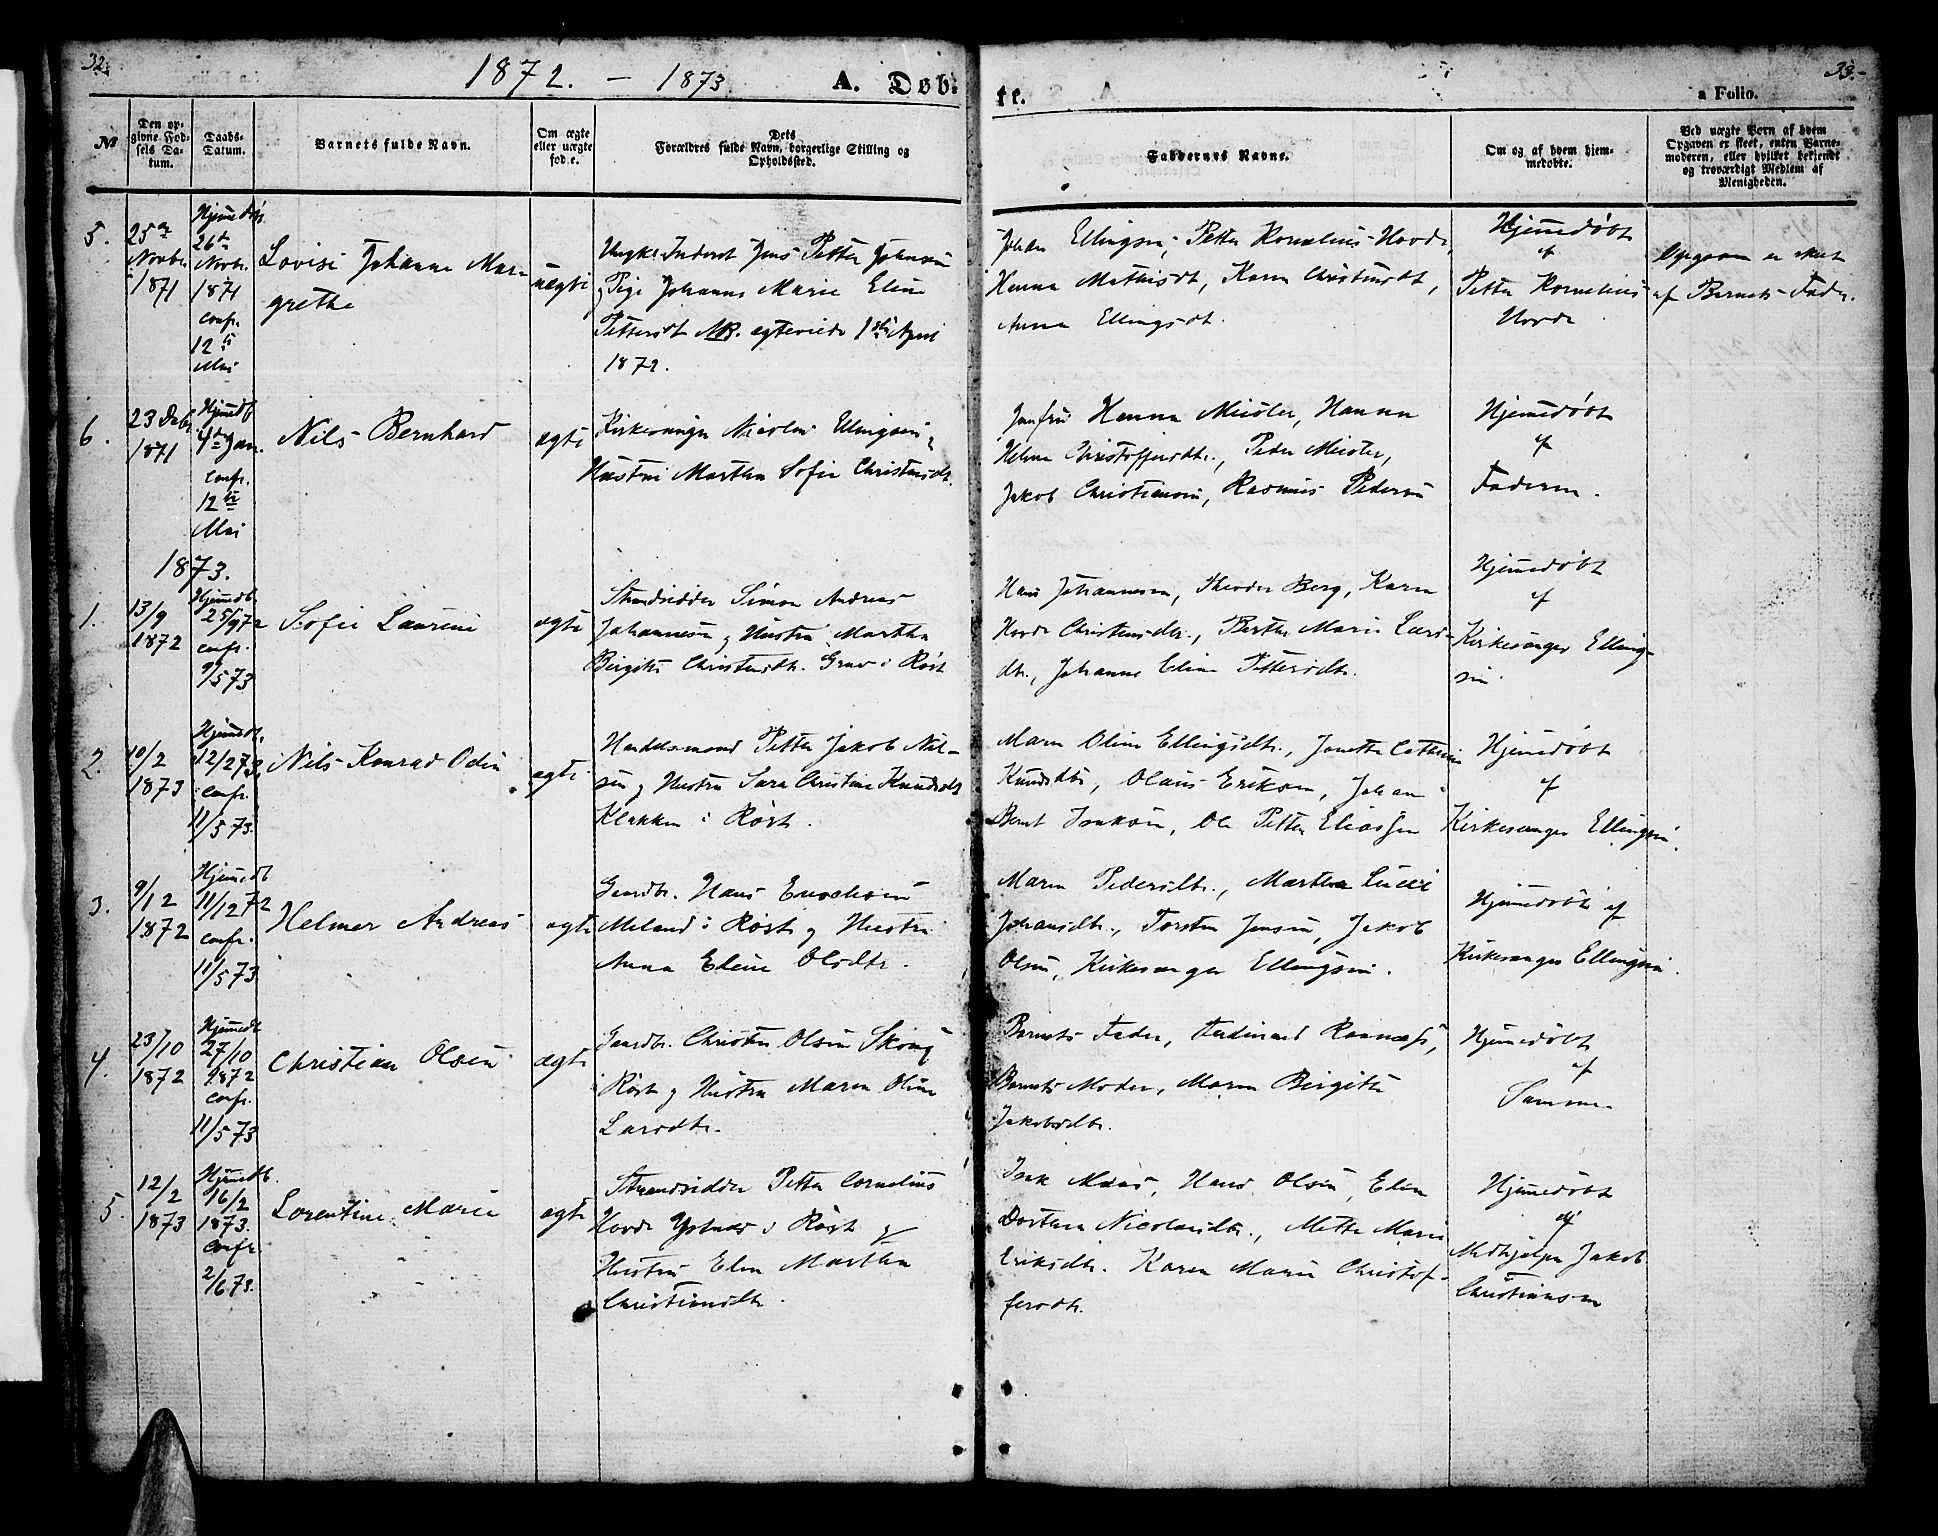 32.
1872. – 1873.
A. Døb-
№
Den op-
givne Fød-
sels Da-
tum.
Daabs-
Datum.
Barnets fulde Navn.
Om ægte
eller uægte
fød.e.
Dets
Forældres fulde Navn, borgerlige Stilling og
Opholdssted.
5.
25de
Novbr.
1871
Hjemedøbt
26de
Novbr.
1871
conf.
12te
Mai
Lovise Johanne Mar-
grethe
uægte
Ungk. Jens Petter Johnsen
og Pige Johanna Marie Eline
Pettersdt. NB. egteviede 1ste April
1872.
6.
23 Debr.
1871
Hjemedb.
4de Jan.
conf.
12te
Mai
Nils Bernhard
ægte
Kirkesanger Nicolai Ellingsen og
Hustru Martha Sofie Christensdt.
1873.
1.
13/9
1872
Hjemedb.
25/9 72
conf.
9/5 73
Sofie Laurine
ægte
Strandsidder Simon Andreas
Johannesen og Hustru Martha
Birgitte Christensdt. Grav i Røst
2.
10/2
1873
Hjemedb.
12/2 73.
conf.
11/5 73.
Nils Konrad Odin
ægte
Handelsmand Petter Jakob Nil-
sen og Hustru Sara Christine Knudsdt.
Klakken i Røst.
3.
9/12
1872
Hjemedb
11/12 72
conf.
11/5 73
Helmer Andreas
ægte
Gaardbr. Hans Enochsen
Meland i Røst og Hustru
Anna Eline Olsdtr.
4.
23/10
1872
Hjemedb
27/10
1872
conf.
11/5 73
Christian Olsen
ægte
Gaardbr. Christen Olsen Skong
i Røst og Hustru Maren Oline
Larsdtr.
5.
12/2
1873
Hjemedb.
16/2
1873.
conf.
2/6 73.
Lorentine Marie
ægte
Strandsidder Petter Cornelius
Hovde Ystnes i Røst og
Hustru Elen Martha
Christiansdtr.
33.
te.
a Folio.
Faddernes Navne.
Om og af hvem hjem-
medøbte.
Ved uægte Børn af hvem
Opgaven er skeet, enten Barne-
moderen, eller hvilket bekjendt
og troværdigt Medlem af
Menigheden.
Johan Ellingsen, Petter Kornelius Hovde,
Hanna Mathisdt, Karen Christensdt,
Anna Ellingsdt.
Hjemedøbt
af
Petter Kornelius
Hovde
Opgaven er skeet
af Barnets Fader.
Jomfru Hanna Meister, Hanna
Helena Christoffersdtr., Peder Meister,
Jakob Christiansen, Rasmus Pedersen
Hjemedøbt
af
Faderen.
Hans Johannesen, Theodor Berg, Karen
Hovde Christensdtr., Berthe Marie Lars-
dtr., Johanne Eline Pettersdtr.
Hjemedøbt
af
Kirkesanger Elling-
sen.
Maren Oline Ellingsdtr., Janetta Cathrine
Knudsdtr, Olaus Eriksen, Johan
Bernt Isaksen, Ole Petter Eliassen
Hjemedøbt
af
Kirkesanger Ellingsen.
Maren Pedersdtr., Martha Lucie
Johansdtr., Torsten Jensen, Jakob
Olsen, Kirkesanger Ellingsen.
Hjemedøbt af
Kirkesanger Ellingsen.
Barnets Fader, Ferdinand Rannæss,
Barnets Moder, Maren Birgitte
Jakobsdtr.
Hjemedøbt
af
Samme
Isak Maas, Hans Olsen, Elen
Dorthea Nicolaisdtr., Mette Marie
Eriksdtr. Karen Marie Christof-
fersdtr.
Hjemedøbt
af
Medhjelper Jakob
Christiansen